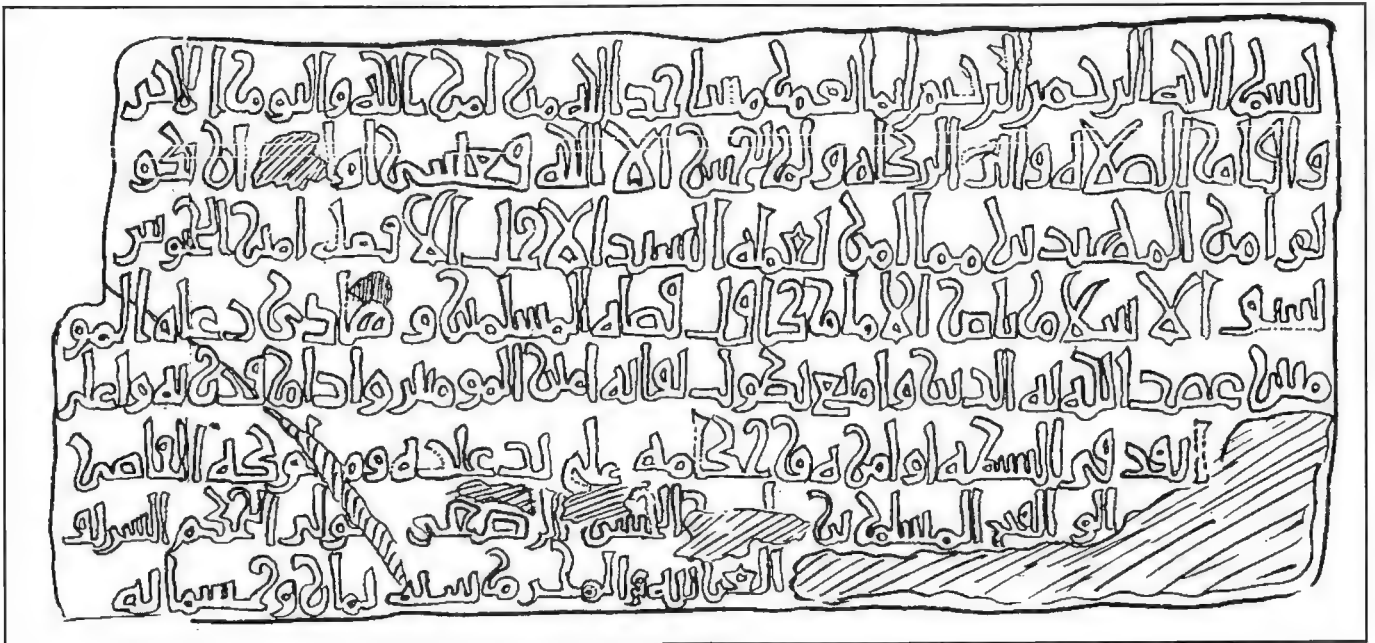 بسم الله الرحمن الرحيم انما يعمر مساجد الله من امن بالله واليوم الاخر
واقام الصلاه واتى الزكاه ولم يخش الا الله فعسى اولئك ان يكو
نوا من المهتدين مما امر بعمله السيد الاجل الافضل امير الجيوش
سيف الاسلام ناصر الامام كافل قضاه المسلمين وهادى دعاه المو
منين عضد الله به الدين وامتع بطول بقائه امير المومنين وادام قدرته واعلى
اوامره على يد عبده ومملوكه القاضى
ابو الفتح المسلم بن الحكم
الله فى المحرم سنه ثمان وخمسمائه